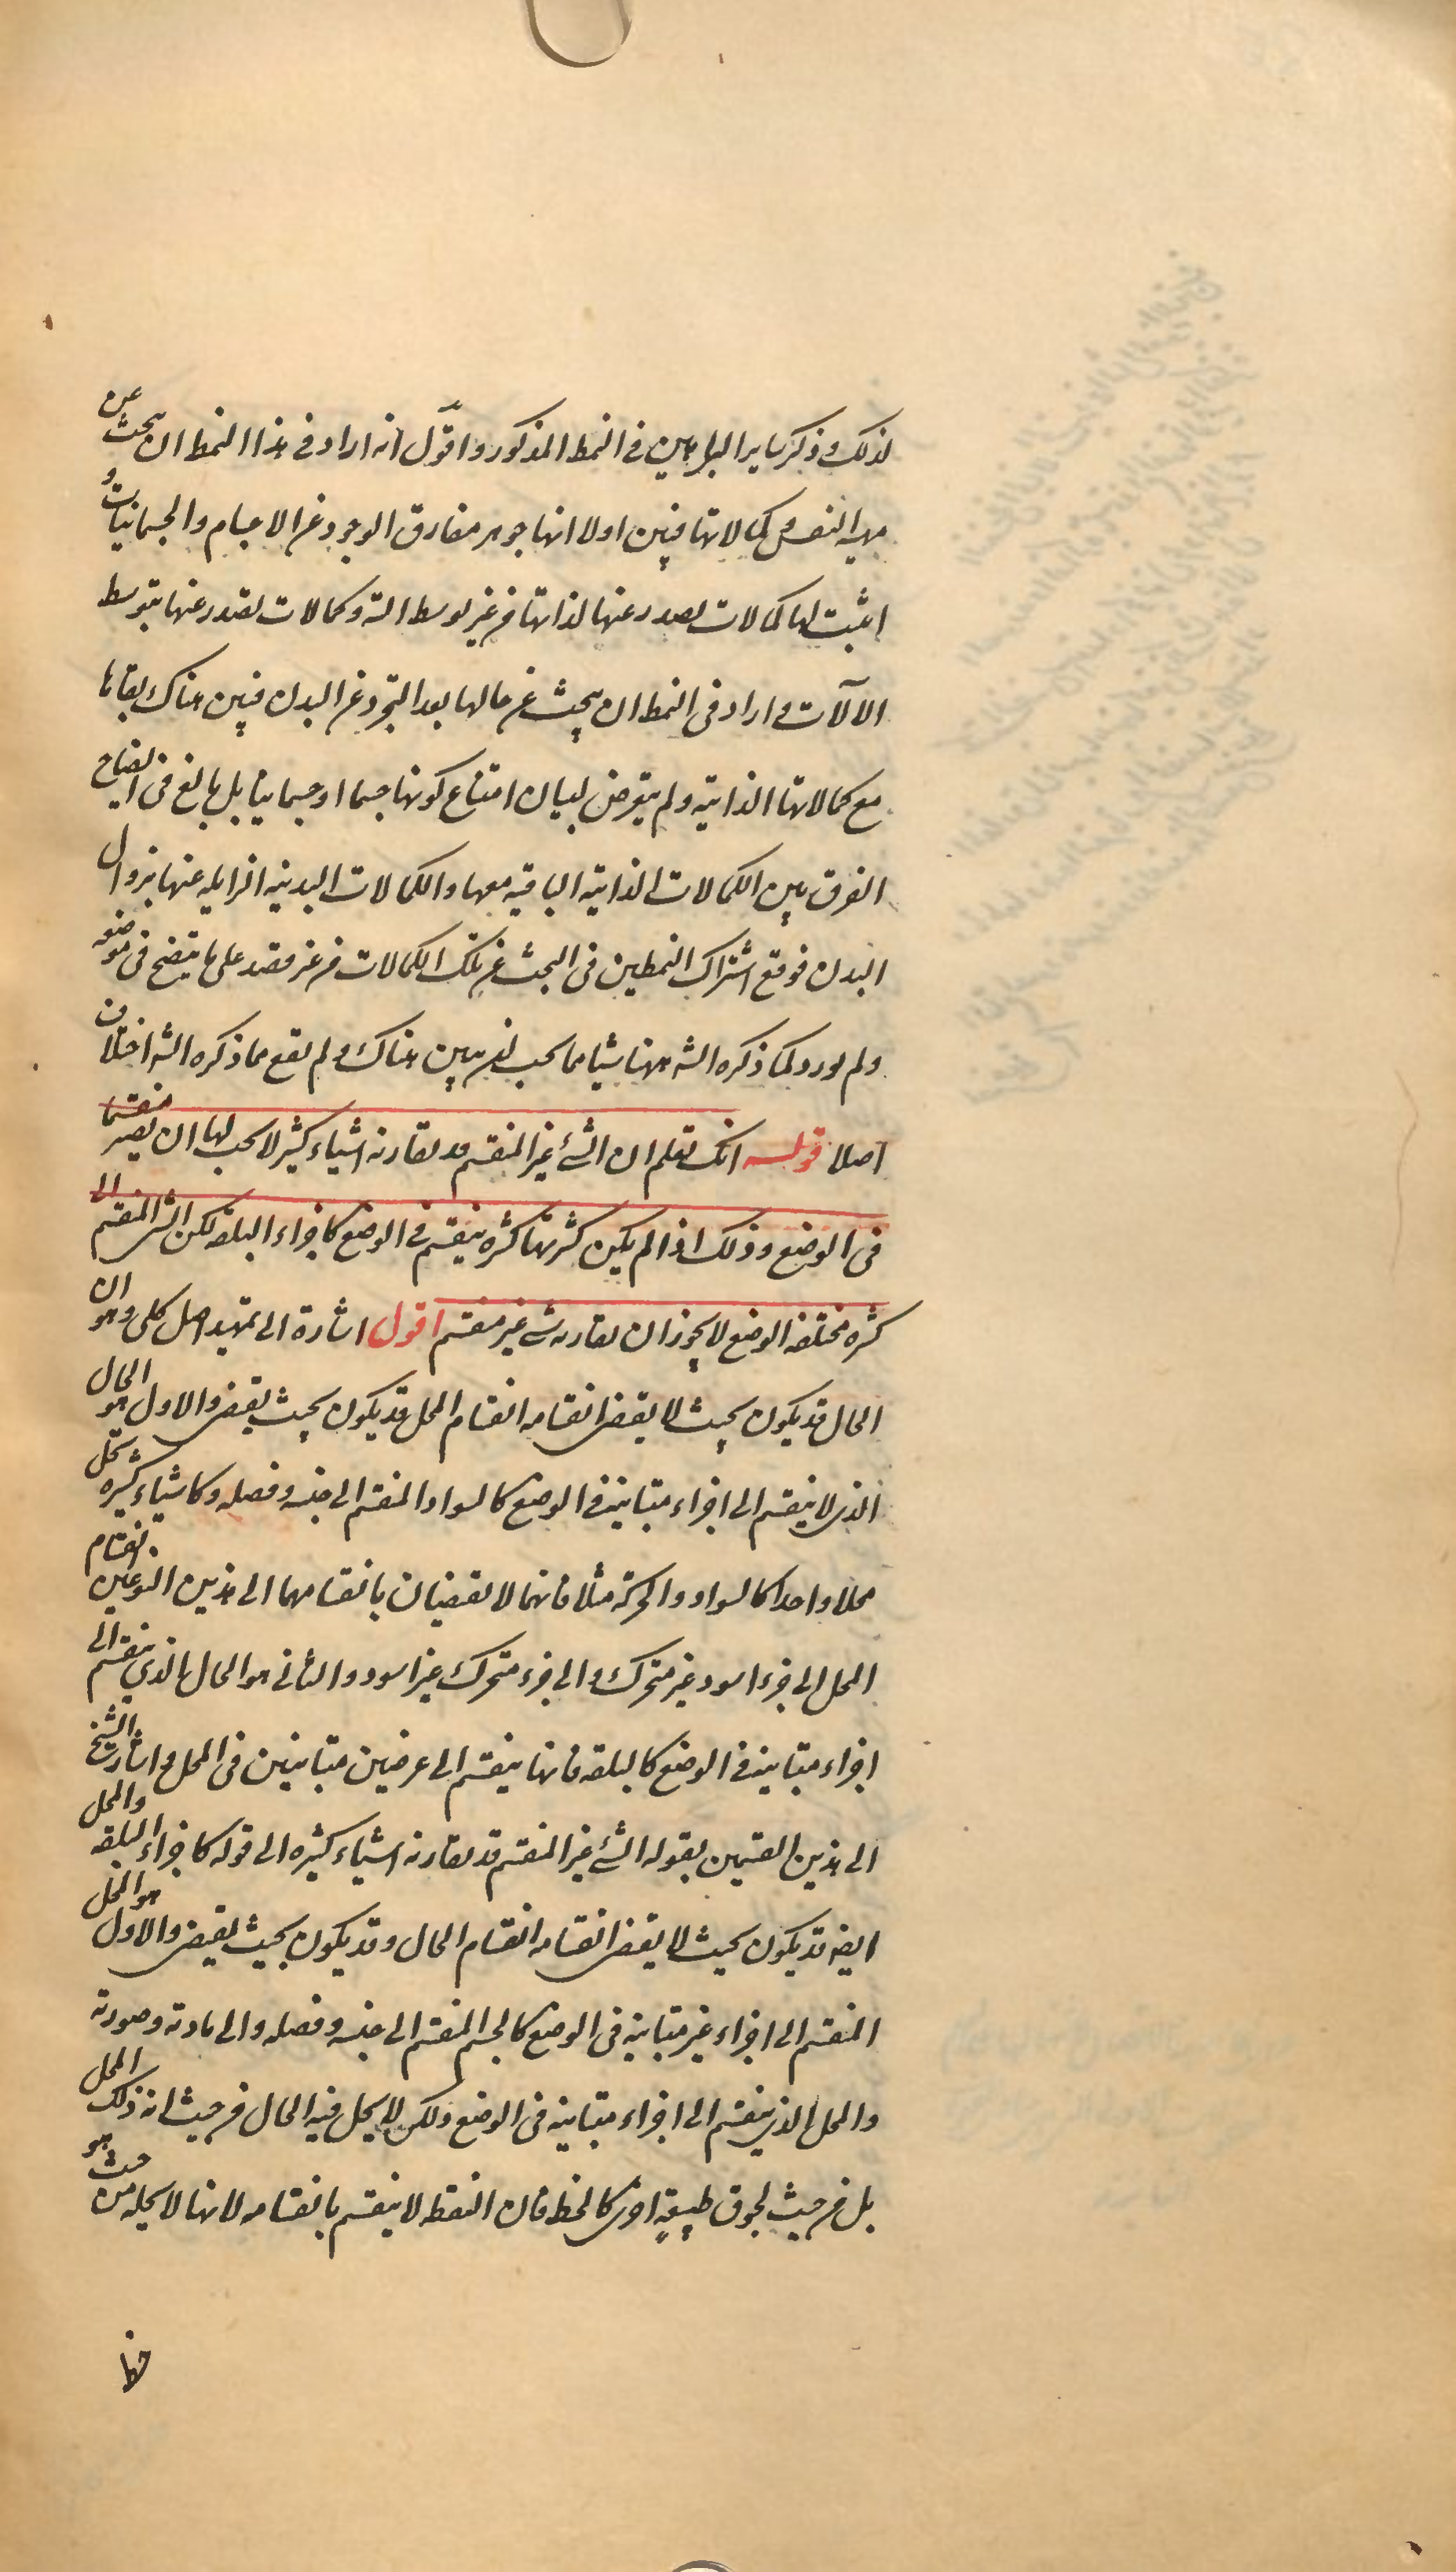 لذلك وذكر ساير البراهين في النمط المذكور واقول انه اراد في هذا النمط ان يبحث عن
مهية النفس وكمالاتها فبين اولا انها جوهر مفارق الوجود عن الاجسام والجسمانيات و
اثبت لها كمالات تصدر عنها لذاتها من غير توسط الة وكمالات تصدر عنها بتوسط
الالآت واراد في النمط ان يبحث عن حالها بعد التجرد عن البدن فبين هناك بقاها
مع كمالاتها الذاتية ولم يتعرض لبيان امتناع كونها جسما او جسمانيا بل بالغ في ايضاح
الفرق بين الكمالات الذاتية الباقية معها والكمالات البدنية الزايلة عنها بزوال
البدن فوقع اشتراك النمطين في البحث عن تلك الكمالات من غير قصد على ما يتضح في موضعه
ولم يورد كما ذكره الشه ههنا شيئا مما يجب ان يبين هناك ولم يقع مما ذكره الشه اختلاف
اصلا قوله انك تعلم ان الشئ غير المنقسم قد يقارنه اشياء كثير لا يجب لها ان يصير منقسما
في الوضع وذلك اذا لم يكن كثرتها كثرة ينقسم في الوضع كاجزاء البلقة لكن الشئ المنقسم الى
كثرة مختلفة الوضع لا يجوز ان يقارنه شئ غير منقسم اقول اشارة الى تمهيد اصل كلى وهو ان
الحال قد يكون بحيث لا يقتضى انقسامه انقسام المحل وقد يكون بحيث يقتضى والاول هو الحال
الذى لا ينقسم الى اجزاء متباينة في الوضع كالسواد المنقسم الى جنسه وفصله وكاشياء كثيرة تحل
محلا واحدا كالسواد والحركة مثلا فانهما لا يقتضيان بانقسامهما الى هذين النوعين انقسام
المحل الى جزء اسود غير متحرك والى جزء متحرك غير اسود والثانى هو الحال الذي ينقسم الى
اجزاء متباينة في الوضع كالبلقة فانها ينقسم الى عرضين متباينين في المحل واشار الشيخ
الى هذين القسمين بقوله الشئ غير المنقسم قد يقارنه اشياء كثيرة الى قوله كاجزاء البلقة والمحل
ايضه قد يكون بحيث لا يقتضى انقسامه انقسام الحال وقد يكون بحيث يقتضى والاول هو المحل
المنقسم الى اجزاء غير متباينة في الوضع كالجسم المنقسم الى جنسه وفصله والى مادته وصورته
والمحل الذي ينقسم الى اجزاء متباينة في الوضع ولكن لا يحل فيه الحال من حيث انه ذلك المحل
بل من حيث لحوق طبيعة اخرى كالخط فان النقطة لا ينقسم بانقسامه لانها لا يحله من حيث هو